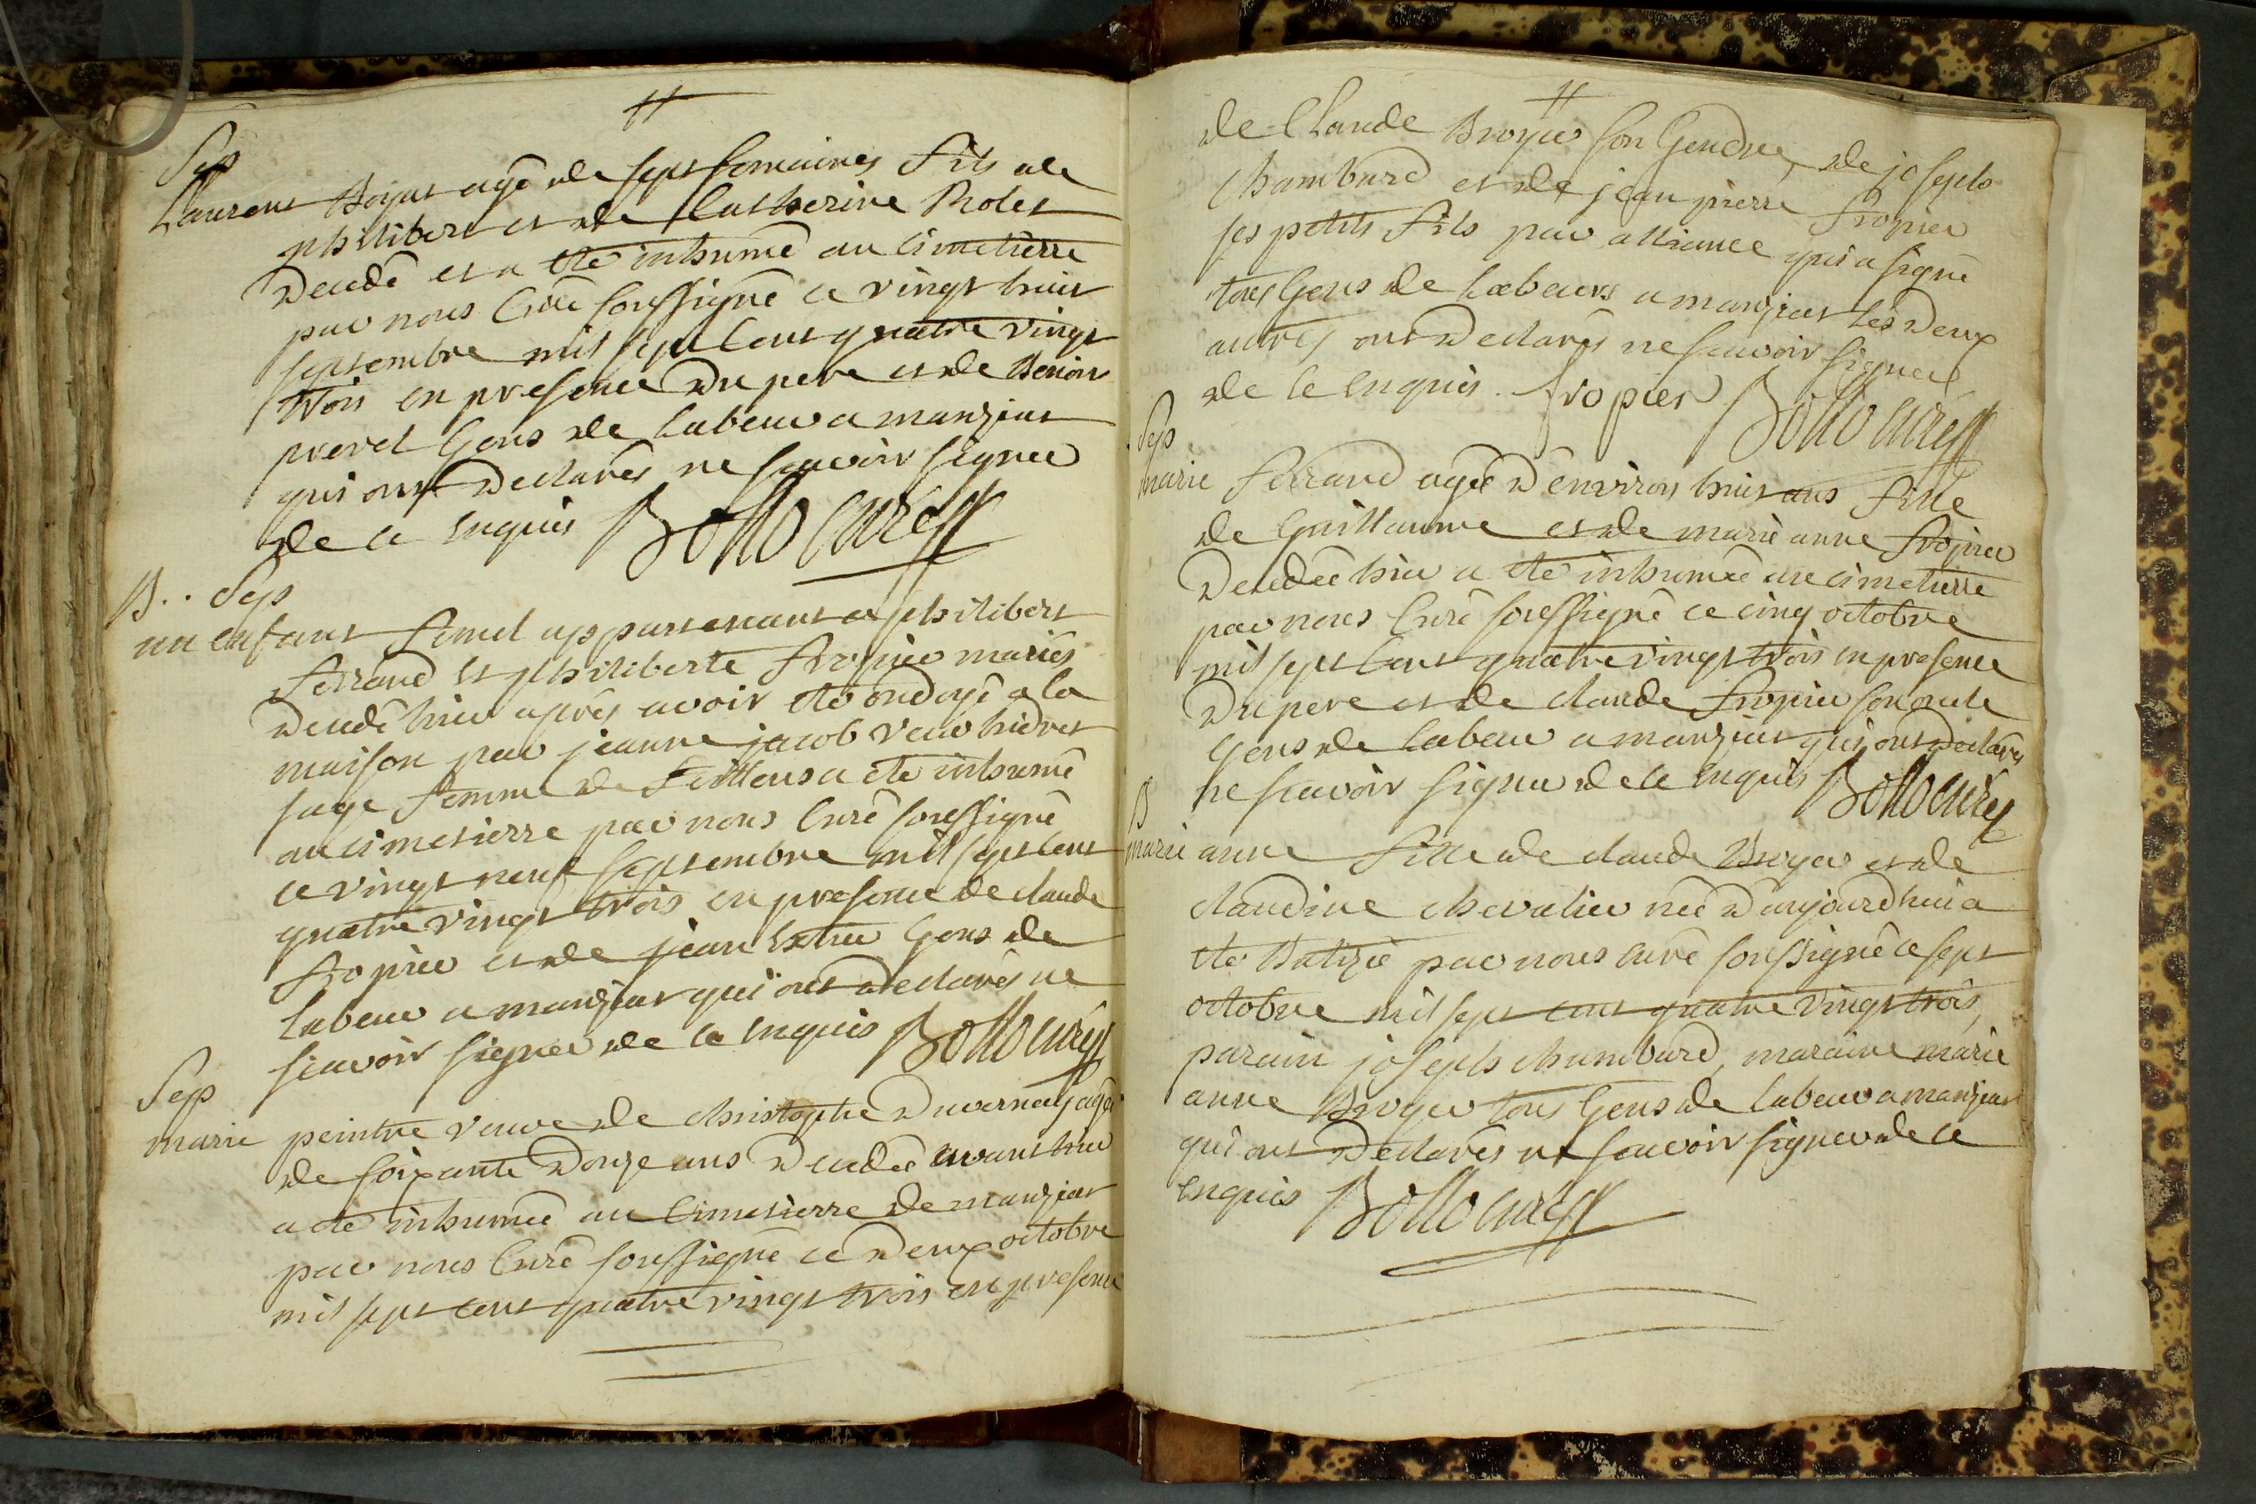 Sep
Laurent Boyat agé de sept semaines fils de
philibert et de Catherine Rolet
decedé et a été inhumé au cimetierre
par nous Curé soussigné ce vingt huit
septembre mil sept cent quatre vingt
trois en presence du pere et de Benoit
prevel Gens de labeur a manziat
qui ont declarés ne scavoir signer
de ce enquis Bollo curé
B.. Sep
un enfant femel appartenant a philibert
ferrand et philiberte fropier mariés
decedé hier aprés avoir été ondoyé a la
maison par jeanne jacob veuv
sage femme de feillens a été inhumé
au cimetierre par nous Curé soussigné
ce vingt neuf septembre mil sept cent
quatre vingt trois en presence de claude
fropier et de jean Gens de
labeur a manziat qui ont declarés ne
scavoir signer de ce enquis Bollo curé
Sep
marie peintre veuve de christophe duvernay agée
de soixante douze ans decedée avant hier
a été inhumée au Cimetierre de manziat
par nous Curé soussigné ce deux octobre
mil sept cent quatre vingt trois en presence
de Claude Broyer son Gendre, de joseph
Chambard et de jean pierre fropier
ses petits fils par alliance qui a signé
tous Gens de Labeurs a manziat les deux
autres ont declarés ne scavoir signer
de ce enquis. fropier Bollo curé
Sep
marie ferrand agée d'environ huit ans fille
de Guillaume et de marie anne fropier
decedée hier a été inhumée au cimetierre
par nous Curé soussigné ce cinq octobre
mil sept cent quatre vingt trois en presence
du pere et de claude fropier son oncle
Gens de labeur a manziat qui ont declarés
ne scavoir signer de ce enquis Bollo curé
B
marie anne fille de claude Broyer et de
claudine chevalier née d'aujourdhui a
été Batizée par nous curé soussigné ce sept
octobre mil sept cent quatre vingt trois,
parain joseph chambard, maraine marie
anne Broyer tous Gens de labeur a manziat
qui ont declarés ne scavoir signer de ce
enquis Bollo curé